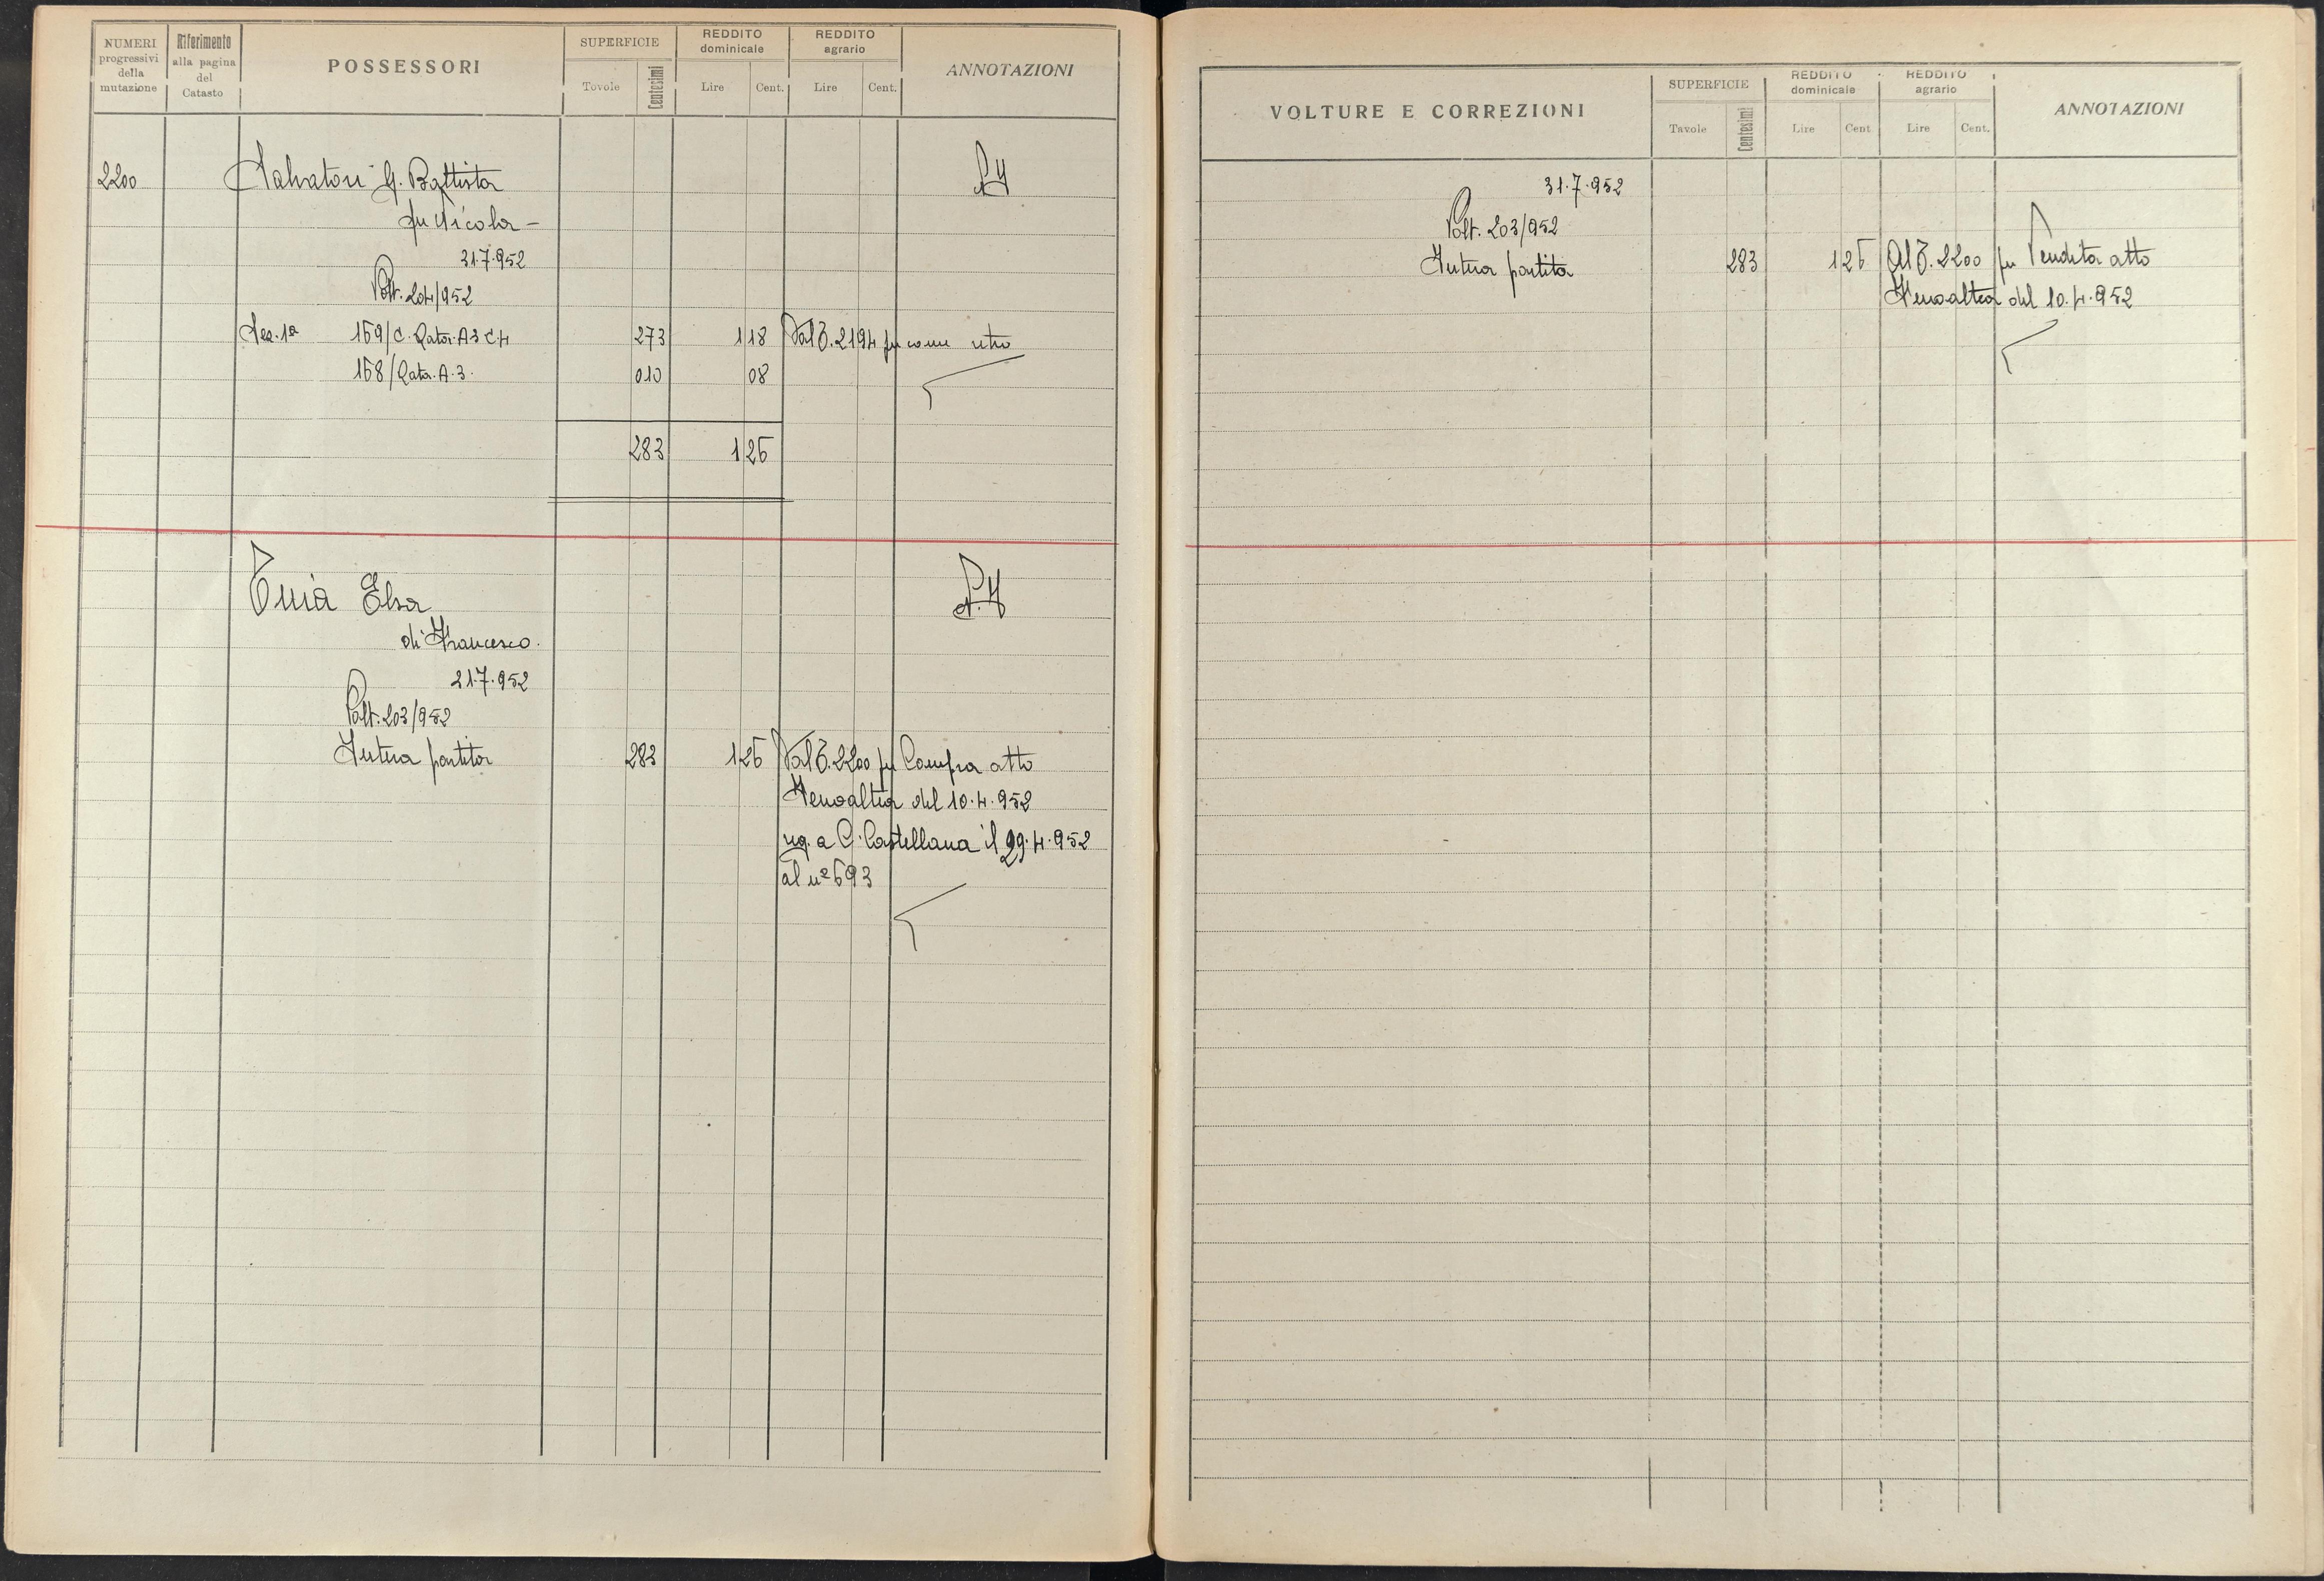 NUMERI progressivi della mutazione
Riferimento alla pagina del Catasto
POSSESSORI
SUPERFICIE
Tovole
Centesimi
REDDITO dominicale
Lire
Cent.
REDDITO agrario
Lire
Cent.
ANNOTAZIONI
2200
Salvatori G. Battista
fu Nicola -
31.7.952
Volt. 204/952
Sez. 1ª 159/C. Qater. A3 C.4 273 1 18 Dal T. 2194 per come retro
158/Qater. A.3. 010 08
283 1 25
Elsa
di Francesco.
21.7.952
Volt. 203/952
Intera partita 283 1 25 Dal T. 2200 per Compra atto
del 10.4.952
reg. a C. Castellana il 29.4.952
al nº 593
VOLTURE E CORREZIONI
SUPERFICIE
Tavole
Centesimi
REDDITO dominicale
Lire
Cent
REDDITO agrario
Lire
Cent.
ANNOTAZIONI
31.7.952
Volt. 203/952
Intera partita 283 1 25 Al T. 2200 per Vendita atto
del 10.4.952